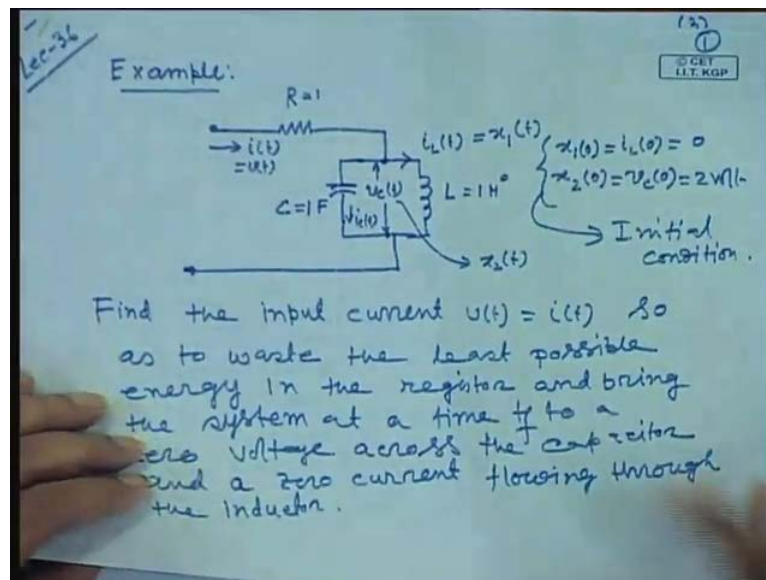 Lec-36
(3)
①
© CET
I.I.T. KGP
Example:
R=1
→ i(t)
= u(t)
i_L(t) = x_1(t)
C=1F
v_c(t)
i_c(t)
L=1H
x_1(0) = i_L(0) = 0
x_2(0) = v_c(0) = 2
→ Initial
condition.
→ x_2(t)
Find the input current u(t) = i(t) so
as to waste the least possible
energy in the registor and bring
the system at a time t_f to a
zero voltage across the capacitor
and a zero current flowing through
the inductor.